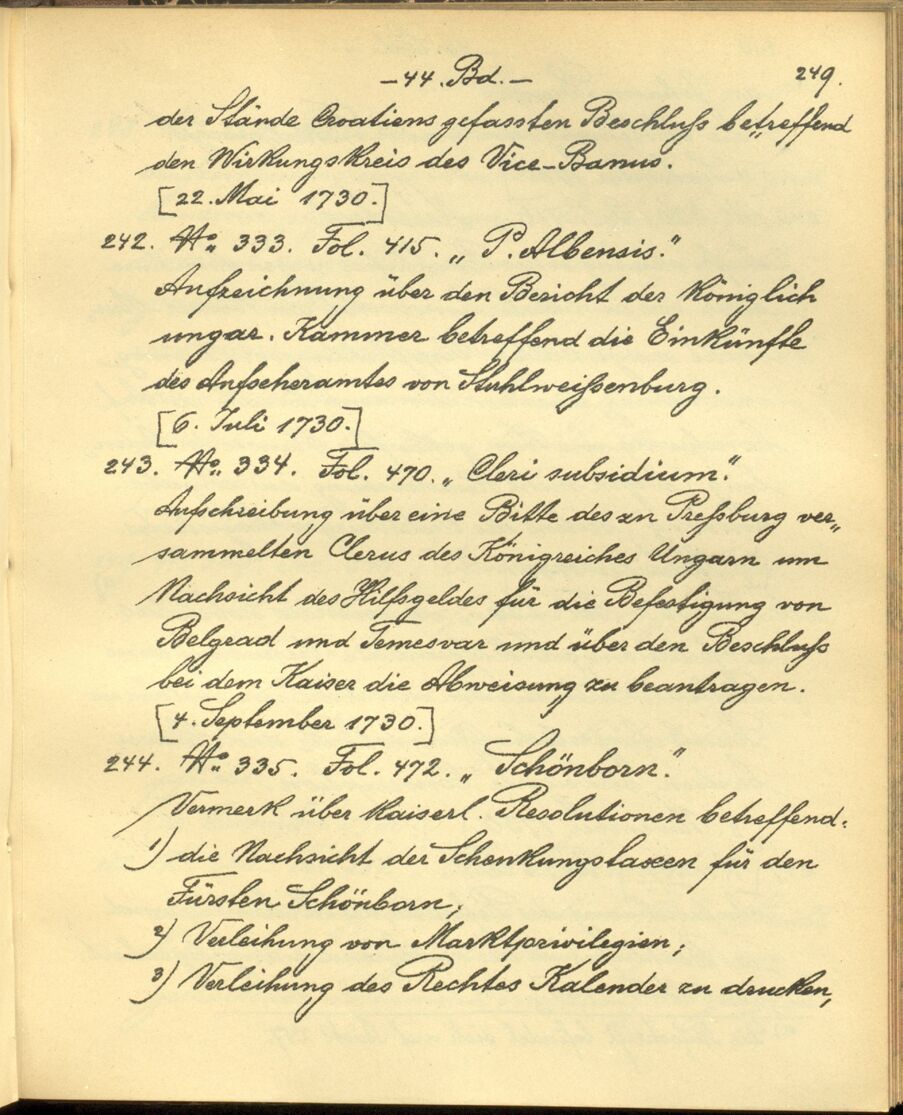 – 44. Bd. –
249.
der Stände Croatiens gefassten Beschluß betreffend
den Wirkungskreis des Vice-Banus.
[22. Mai 1730.]
242. No. 333. Fol. 415. „P. Albensis."
Aufzeichnung über den Bericht der königlich
ungar. Kammer betreffend die Einkünfte
des Aufseheramtes von Stuhlweißenburg.
[6. Juli 1730.]
243. No. 334. Fol. 470. „Cleri subsidium".
Aufschreibung über eine Bitte des zu Preßburg ver„
sammelten Clerus des Königreiches Ungarn um
Nachsicht des Hilfsgeldes für die Befestigung von
Belgrad und Temesvar und über den Beschluß
bei dem Kaiser die Abweisung zu beantragen.
[4. September 1730.]
244. No. 335. Fol. 472. „Schönborn."
Vermerk über kaiserl. Resolutionen betreffend:
1) die Nachsicht der Schenkungstaxen für den
Fürsten Schönborn;
2) Verleihung von Marktprivilegien;
3) Verleihung des Rechtes Kalender zu drucken,